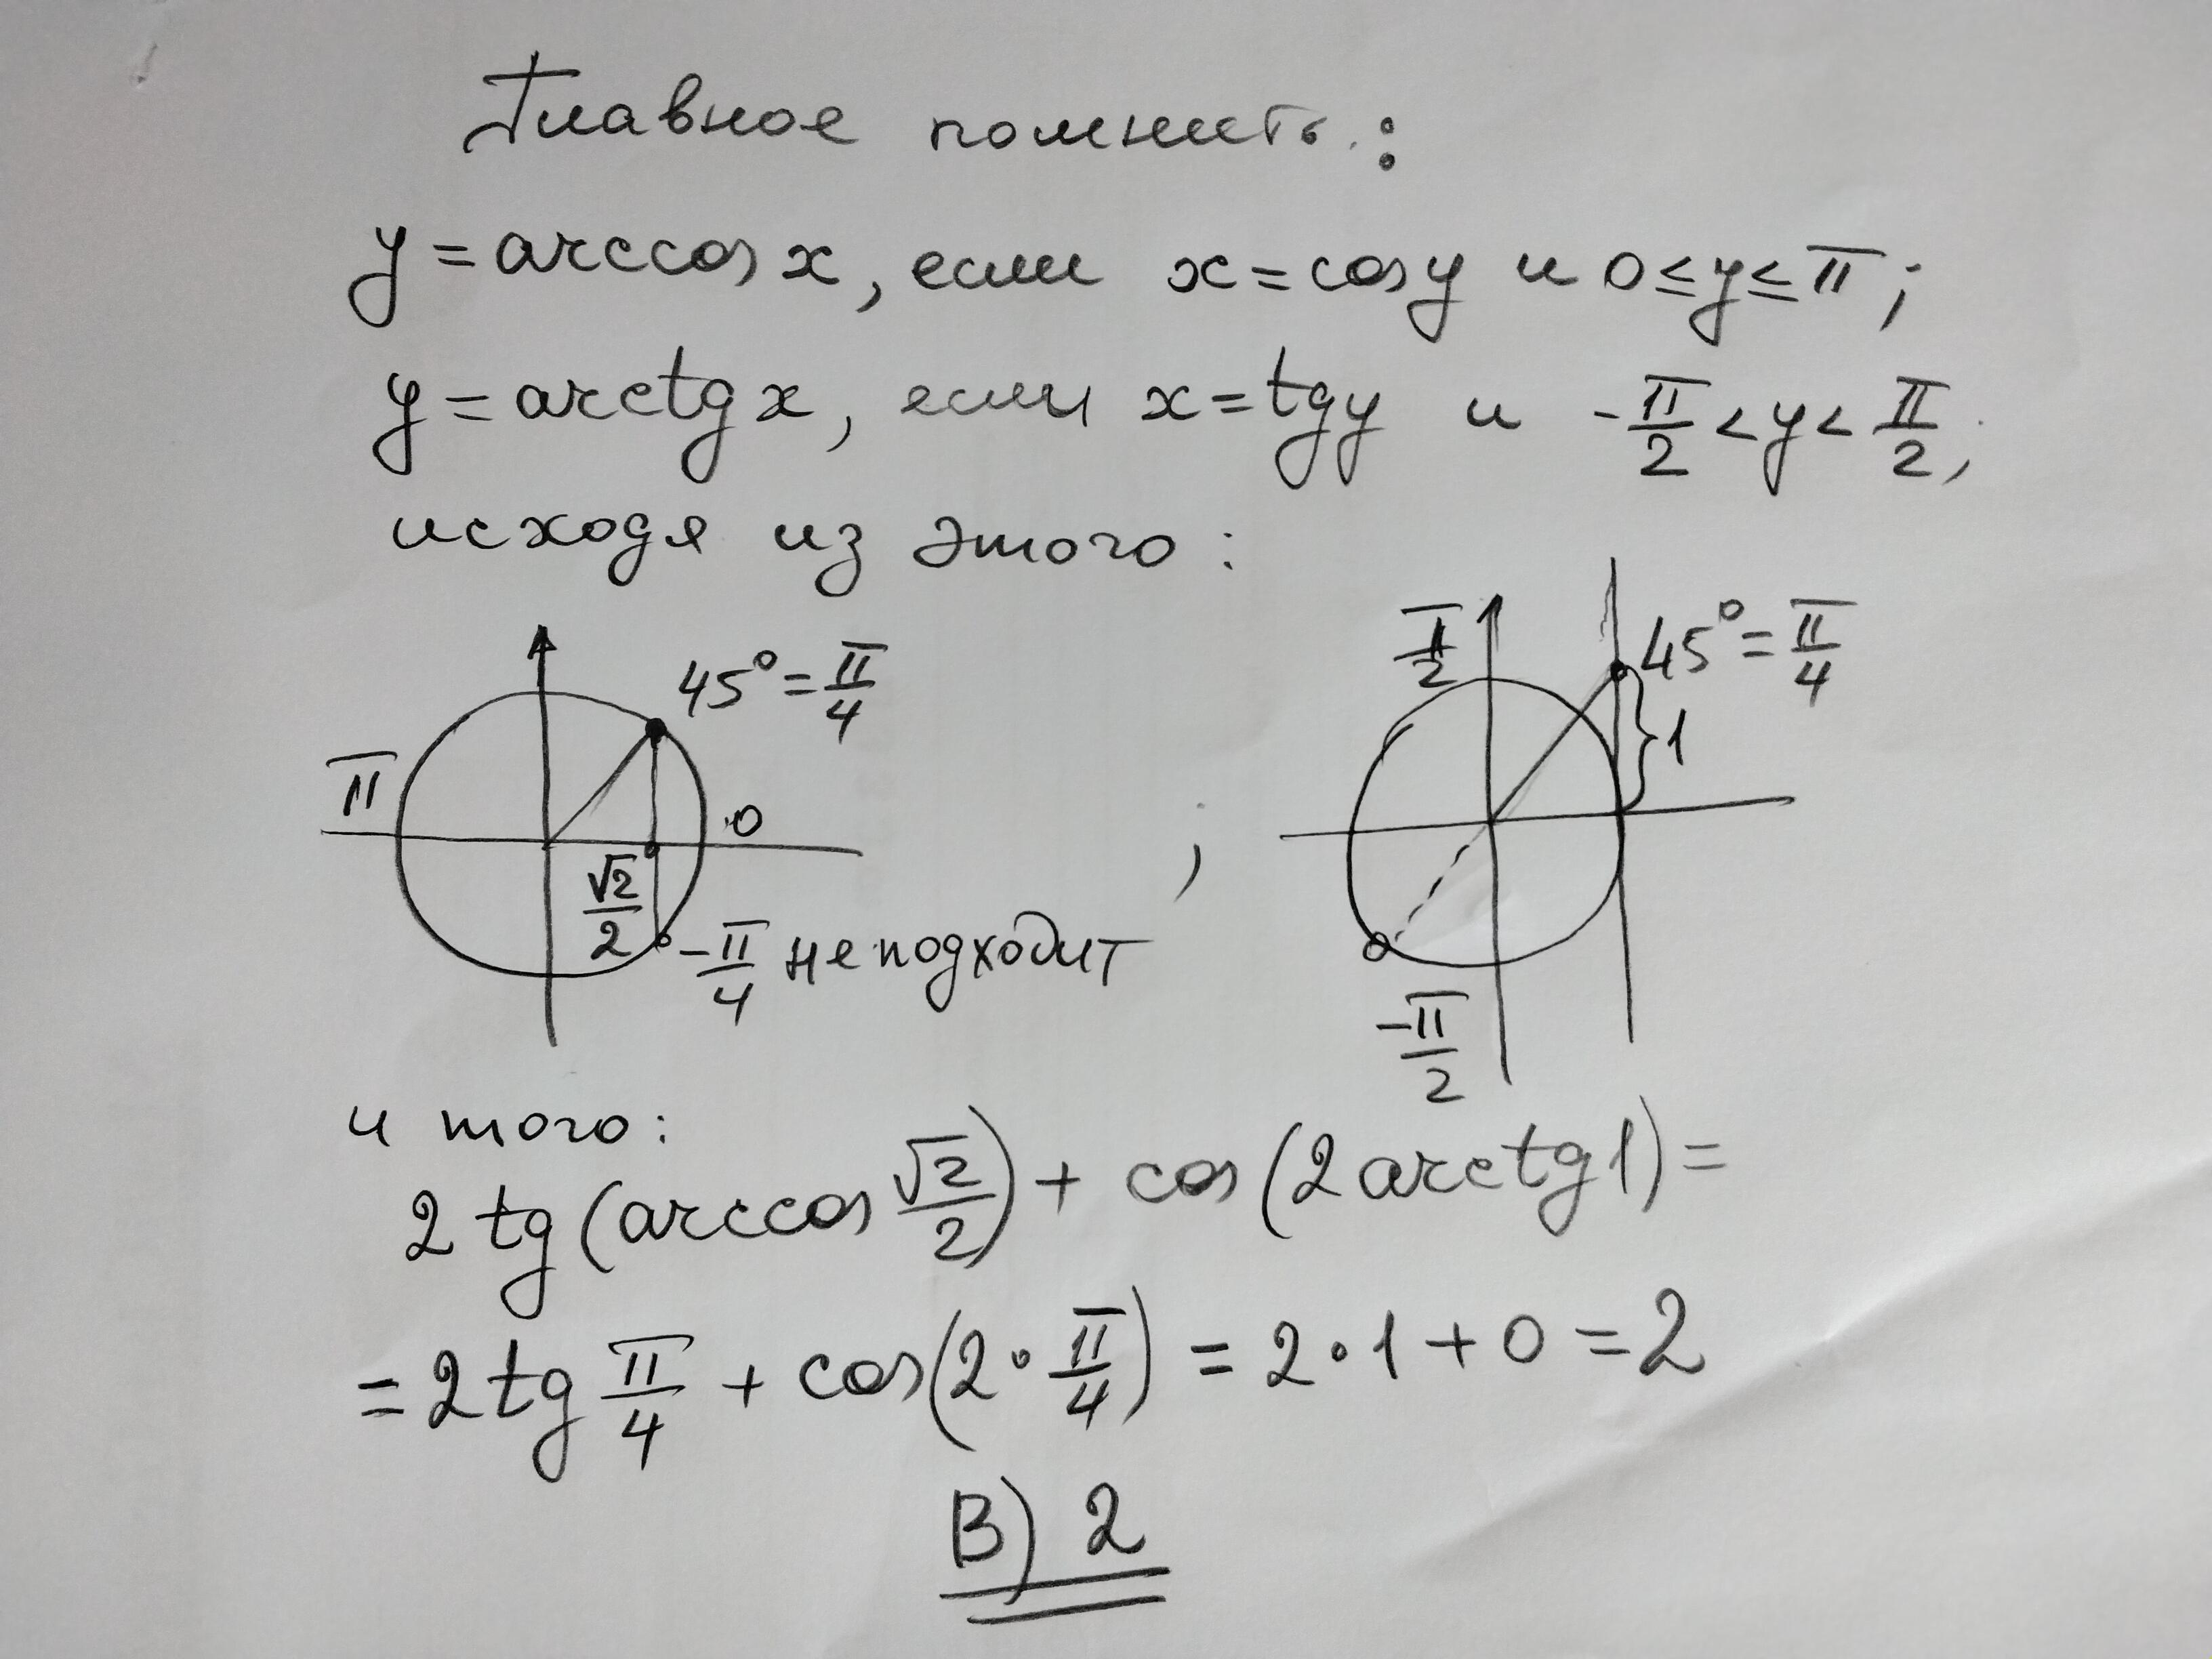 Главное помнить:
y = arccos x, если x = cos y и 0 ≤ y ≤ π;
y = arctg x, если x = tg y и -π/2 < y < π/2,
исходя из этого:
45° = π/4
π
0
√2/2
-π/4 не подходит
;
π/2
45° = π/4
1
-π/2
итого:
2 tg (arccos √2/2) + cos (2 arctg 1) =
= 2 tg π/4 + cos (2 · π/4) = 2 · 1 + 0 = 2
B) 2